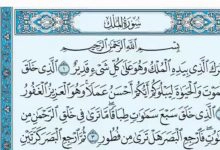 سورة الملك
بسم الله الرحمن الرحيم
تبرك الذي بيده الملك وهو على كل شيء قدير ١ الذي خلق
الموت والحيوة ليبلوكم أيكم أحسن عملا وهو العزيز الغفور
الذي خلق سبع سموت طباقا ما ترى في خلق الرحمن من
فارجع البصر هل ترى من فطور ٣ ثم ارجع البصر كرتين